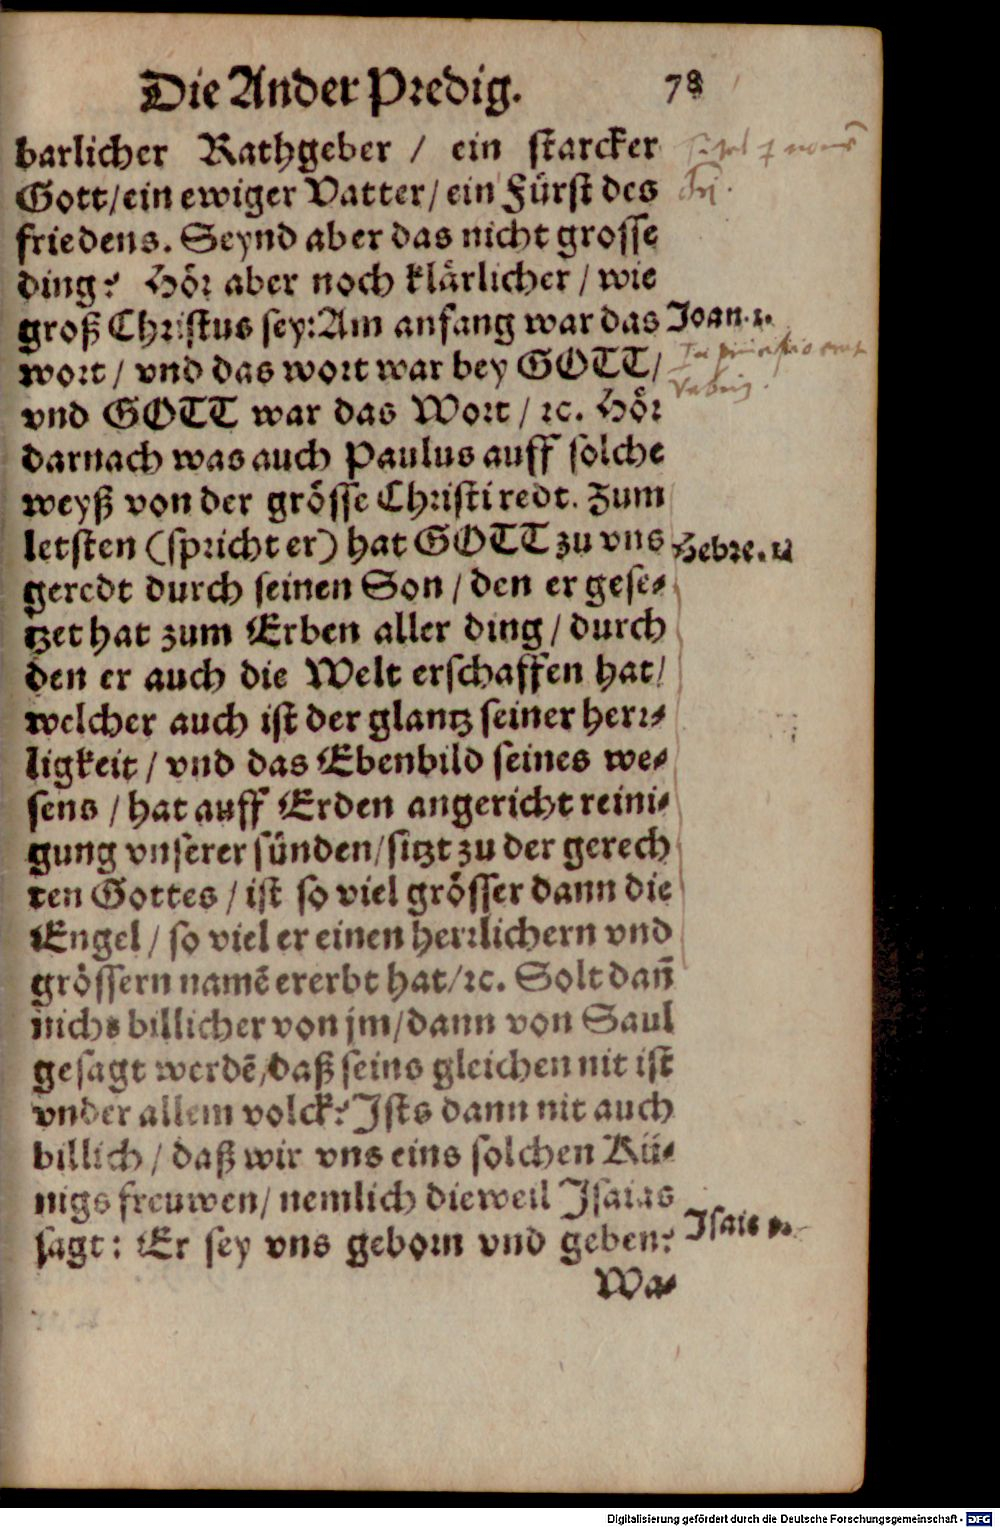 Die Ander Predig. 78
barlicher Rathgeber / ein starcker
Gott/ein ewiger Vatter/ein Fürst des
friedens. Seynd aber das nicht grosse
ding? Hör aber noch klärlicher / wie
groß Christus sey: Am anfang war das
Joan. 1.
wort / vnd das wort war bey GOTT/
vnd GOTT war das Wort / ꝛc. Hör
darnach was auch Paulus auff solche
weyß von der grösse Christi redt. Zum
letsten (spricht er) hat GOTT zu vns
Hebre. 1
geredt durch seinen Son / den er gese⸗
tzet hat zum Erben aller ding / durch
den er auch die Welt erschaffen hat/
welcher auch ist der glantz seiner herr⸗
ligkeit / vnd das Ebenbild seines we⸗
sens / hat auff Erden angericht reini⸗
gung vnserer sünden/sitzt zu der gerech
ten Gottes / ist so viel grösser dann die
Engel / so viel er einen herrlichern vnd
grössern namẽ ererbt hat/ꝛc. Solt dañ
nichs billicher von jm/dann von Saul
gesagt werdẽ/daß seins gleichen nit ist
vnder allem volck? Ists dann nit auch
billich / daß wir vns eins solchen Kü⸗
nigs freuwen/ nemlich dieweil Isaias
sagt: Er sey vns geborn vnd geben?
Isaie 9.
Wa⸗
Digitalisierung gefördert durch die Deutsche Forschungsgemeinschaft - DFG